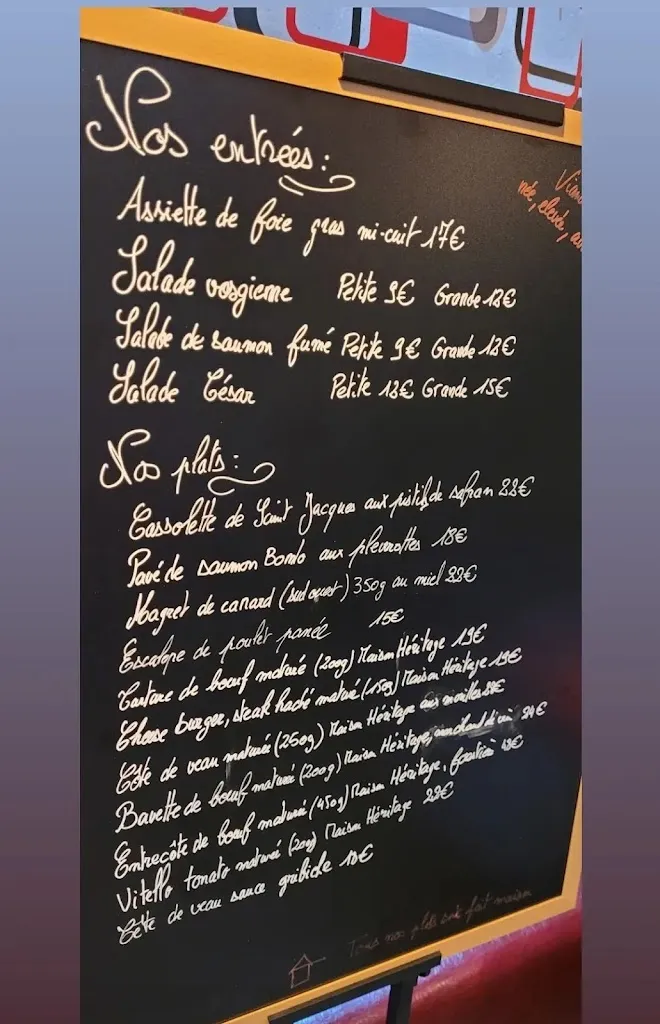 Nos entrées :
Assiette de foie gras mi-cuit 17€
Salade vosgienne Petite 9€ Grande 12€
Salade de saumon fumé Petite 9€ Grande 12€
Salade César Petite 12€ Grande 15€
Nos plats :
Cassolette de Saint Jacques aux pistils de safran 22€
Pavé de saumon Bomlo aux pleurottes 18€
Magret de canard (sud ouest) 350g au miel 22€
Escalope de poulet panée 15€
Tartare de bœuf maturé (200g) Maison Héritage 19€
Cheese burger, steak haché maturé (150g) Maison Héritage 19€
Côte de veau maturée (250g) Maison Héritage aux morilles
Bavette de bœuf maturée (200g) Maison Héritage, marchand de vin 24€
Entrecôte de bœuf maturée (450g) Maison Héritage,
Vitello tonato maturé Maison Héritage 22€
Tête de veau sauce gribiche 18€
Tous nos plats sont fait maison
née, elevée,